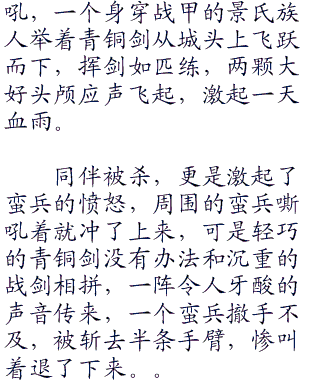 吼，一个身穿战甲的景氏族
人举着青铜剑从城头上飞跃
而下，挥剑如匹练，两颗大
好头颅应声飞起，激起一天
血雨。
同伴被杀，更是激起了
蛮兵的愤怒，周围的蛮兵嘶
吼着就冲了上来，可是轻巧
的青铜剑没有办法和沉重的
战剑相拼，一阵令人牙酸的
声音传来，一个蛮兵撤手不
及，被斩去半条手臂，惨叫
着退了下来。。